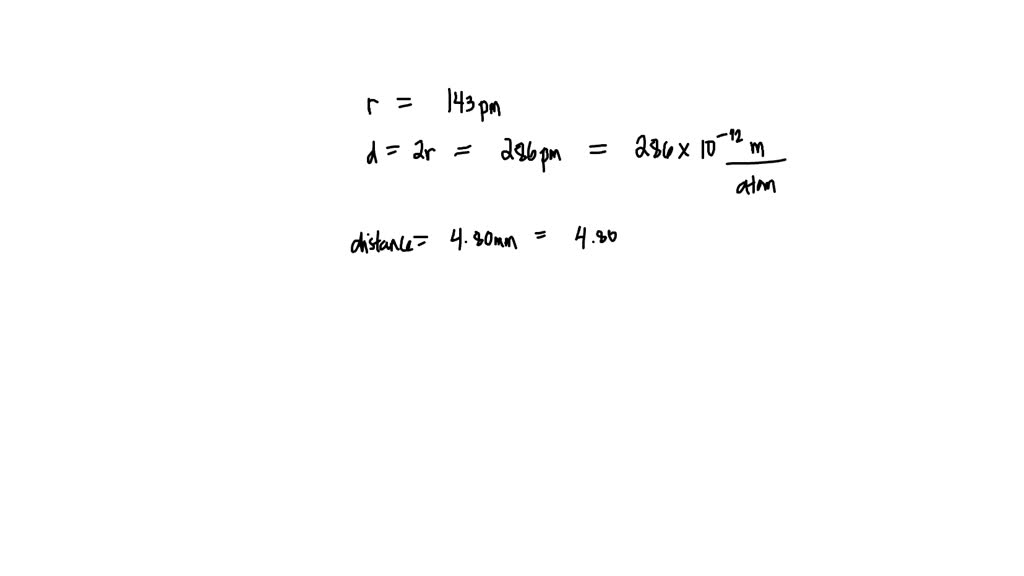 r = 143pm
d = 2r = 286pm = 286 x 10^-12 m/atom
distance = 4.80mm = 4.80